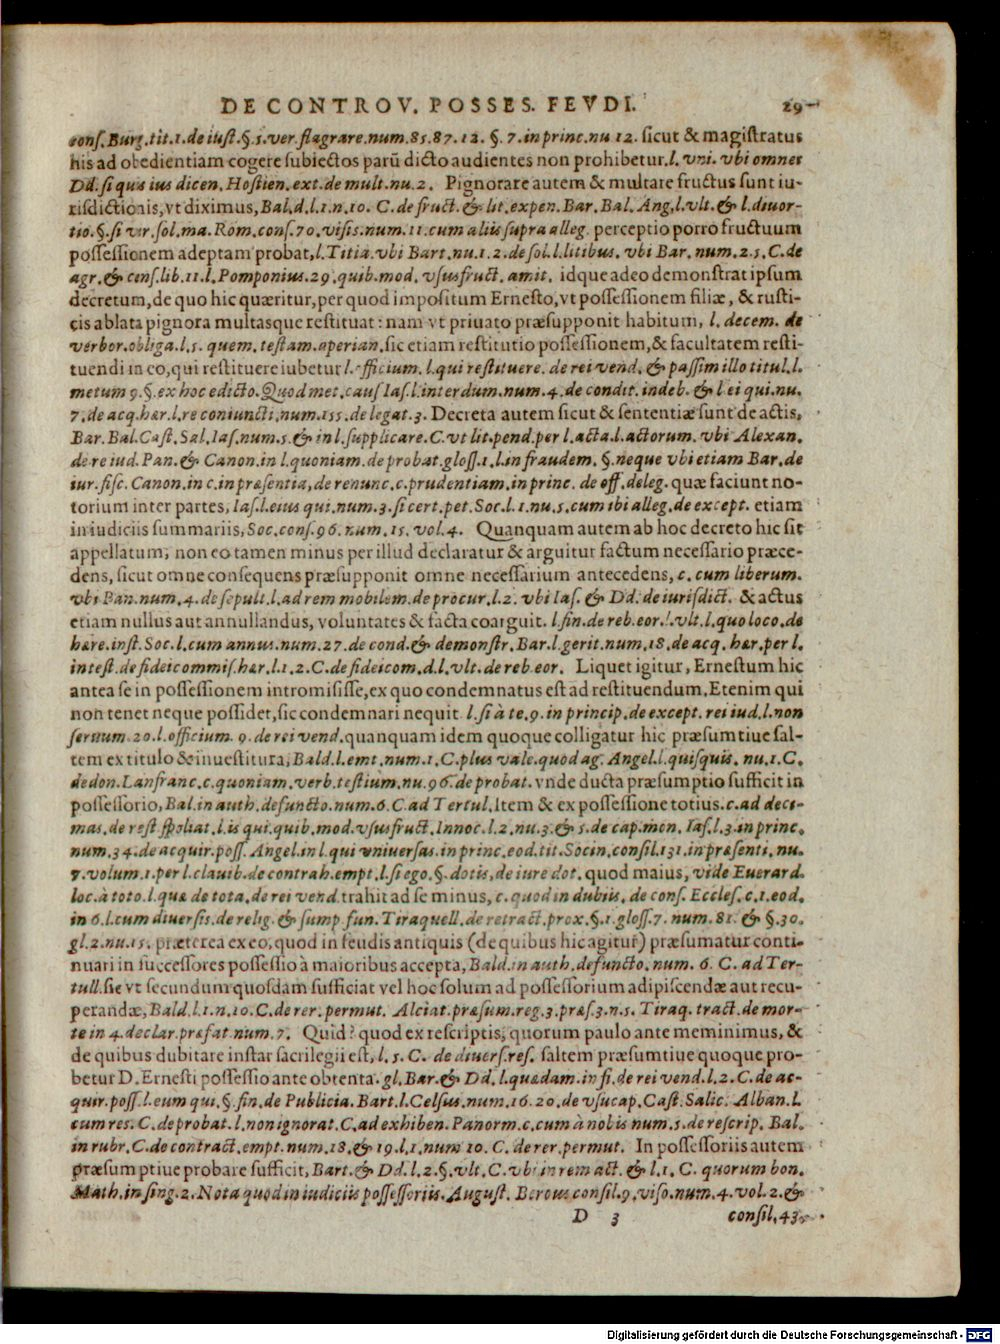 DE CONTROV. POSSES. FEVDI. 29
conſ. Burg. tit. 1. de iuſt. §. 5. ver. flagrare. num. 85. 87. 12. §. 7. in princ. nu 12. ſicut & magiſtratus
his ad obedientiam cogere ſubiectos parū dicto audientes non prohibetur. l. vni. vbi omnes
Dd. ſi quis ius dicen. Hoſtien. ext. de mult. nu. 2. Pignorare autem & multare fructus ſunt iu-
riſdictionis, vt diximus, Bal. d. l. 1. n. 10. C. de fruct. & lit. expen. Bar. Bal. Ang. l. vlt. & l. diuor-
tio. §. ſi vir. ſol. ma. Rom. conſ. 70. viſis. num. 11. cum aliis ſupra alleg. perceptio porro fructuum
poſſeſſionem adeptam probat, l. Titia. vbi Bart. nu. 1. 2. de ſol. l. litibus. vbi Bar. num. 2. 5. C. de
agr. & cenſ. lib. 11. l. Pomponius. 29. quib. mod. vſusfruct. amit. idque adeo demonſtrat ipſum
decretum, de quo hic quæritur, per quod impoſitum Erneſto, vt poſſeſſionem filiæ, & ruſti-
cis ablata pignora multasque reſtituat: nam vt priuatio præſupponit habitum, l. decem. de
verbor. obliga. l. 5. quem. teſtam. aperian. ſic etiam reſtitutio poſſeſſionem, & facultatem reſti-
tuendi in eo, qui reſtituere iubetur l. officium. l. qui reſtituere. de rei vend. & paſſim illo titul. l.
metum 9. §. ex hoc edicto. Quod met. cauſ Iaſ. l. interdum. num. 4. de condit. indeb. & l. ei qui. nu.
7. de acq. hær. l. re coniuncti. num. 155. de legat. 3. Decreta autem ſicut & ſententiæ ſunt de actis,
Bar. Bal. Caſt. Sal. Iaſ. num. 5. & in l. ſupplicare. C. vt lit. pend. per l. acta. l. actorum. vbi Alexan.
de re iud. Pan. & Canon. in l. quoniam. de probat. gloſſ. 1. l. in fraudem. §. neque vbi etiam Bar. de
iur. fiſc. Canon. in c. in præſentia, de renunc. c. prudentiam. in princ. de off. deleg. quæ faciunt no-
torium inter partes, Iaſ. l. eius qui. num. 3. ſi cert. pet. Soc. l. 1. nu. 5. cum ibi alleg. de except. etiam
in iudiciis ſummariis, Soc. conſ. 96. num. 15. vol. 4. Quanquam autem ab hoc decreto hic ſit
appellatum, non eo tamen minus per illud declaratur & arguitur factum neceſſario præce-
dens, ſicut omne conſequens præſupponit omne neceſſarium antecedens, c. cum liberum.
vbi Pan. num. 4. de ſepult. l. ad rem mobilem. de procur. l. 2. vbi Iaſ. & Dd. de iuriſdict. & actus
etiam nullus aut annullandus, voluntates & facta coarguit. l. fin. de reb. eor. l. vlt. l. quo loco. de
hære. inſt. Soc. l. cum annus. num. 27. de cond. & demonſtr. Bar. l. gerit. num. 18. de acq. hær. per l.
inteſt. de fideicommiſ. hær. l. 1. 2. C. de fideicom. d. l. vlt. de reb. eor. Liquet igitur, Erneſtum hic
antea ſe in poſſeſſionem intromiſiſſe, ex quo condemnatus eſt ad reſtituendum. Etenim qui
non tenet neque poſſidet, ſic condemnari nequit l. ſi à te. 9. in princip. de except. rei iud. l. non
ſeruum. 20. l. officium. 9. de rei vend. quanquam idem quoque colligatur hic præſumtiue ſal-
tem ex titulo & inueſtitura, Bald. l. emt. num. 1. C. plus vale. quod ag. Angel. l. quiſquis. nu. 1. C.
de don. Lanfranc. c. quoniam. verb. teſtium. nu. 96. de probat. vnde ducta præſumptio ſufficit in
poſſeſſorio, Bal. in auth. defuncto. num. 6. C. ad Tertul. Item & ex poſſeſſione totius. c. ad deci-
mas. de reſt. ſpoliat. l. is qui. quib. mod. vſusfruct. Innoc. l. 2. nu. 3. & 5. de cap. mon. Iaſ. l. 3. in princ.
num. 34. de acquir. poſſ. Angel. in l. qui vniuerſas. in princ. eod. tit. Socin. conſil. 131. in præſenti. nu.
7. volum. 1. per l. clauib. de contrah. empt. l. ſi ego. §. dotis, de iure dot. quod maius, vide Euerard.
loc. à toto. l. quæ de tota. de rei vend. trahit ad ſe minus, c. quod in dubiis, de conſ. Eccleſ. c. 1. eod.
in 6. l. cum diuerſis. de relig. & ſump. fun. Tiraquell. de retract. prox. §. 1. gloſſ. 7. num. 81. & §. 30.
gl. 2. nu. 15. præterea ex eo, quod in feudis antiquis (de quibus hic agitur) præſumatur conti-
nuari in ſucceſſores poſſeſſio à maioribus accepta, Bald. in auth. defuncto. num. 6. C. ad Ter-
tull. ſic vt ſecundum quoſdam ſufficiat vel hoc ſolum ad poſſeſſorium adipiſcendæ aut recu-
perandæ, Bald. l. 1. n. 10. C. de rer. permut. Alciat. præſum. reg. 3. præſ. 3. n. 5. Tiraq. tract. de mor-
te in 4. declar. præfat. num. 7. Quid? quod ex reſcriptis, quorum paulo ante meminimus, &
de quibus dubitare inſtar ſacrilegii eſt, l. 5. C. de diuerſ. reſ. ſaltem præſumtiue quoque pro-
betur D. Erneſti poſſeſſio ante obtenta. gl. Bar. & Dd. l. quædam. in fi. de rei vend. l. 2. C. de ac-
quir. poſſ. l. eum qui. §. fin. de Publicia. Bart. l. Celſus. num. 16. 20. de vſucap. Caſt. Salic. Alban. l.
cum res. C. de probat. l. non ignorat. C. ad exhiben. Panorm. c. cum à nobis num. 5. de reſcrip. Bal.
in rubr. C. de contract. empt. num. 18. & 19. l. 1. num 10. C. de rer. permut. In poſſeſſoriis autem
præſumptiue probare ſufficit, Bart. & Dd. l. 2. §. vlt. C. vbi in rem act. & l. 1. C. quorum bon.
Math. in ſing. 2. Nota quod in iudiciis poſſeſſoriis. Auguſt. Berous conſil. 9. viſo. num. 4. vol. 2. &
D 3 conſil. 43.
Digitalisierung gefördert durch die Deutsche Forschungsgemeinschaft - DFG